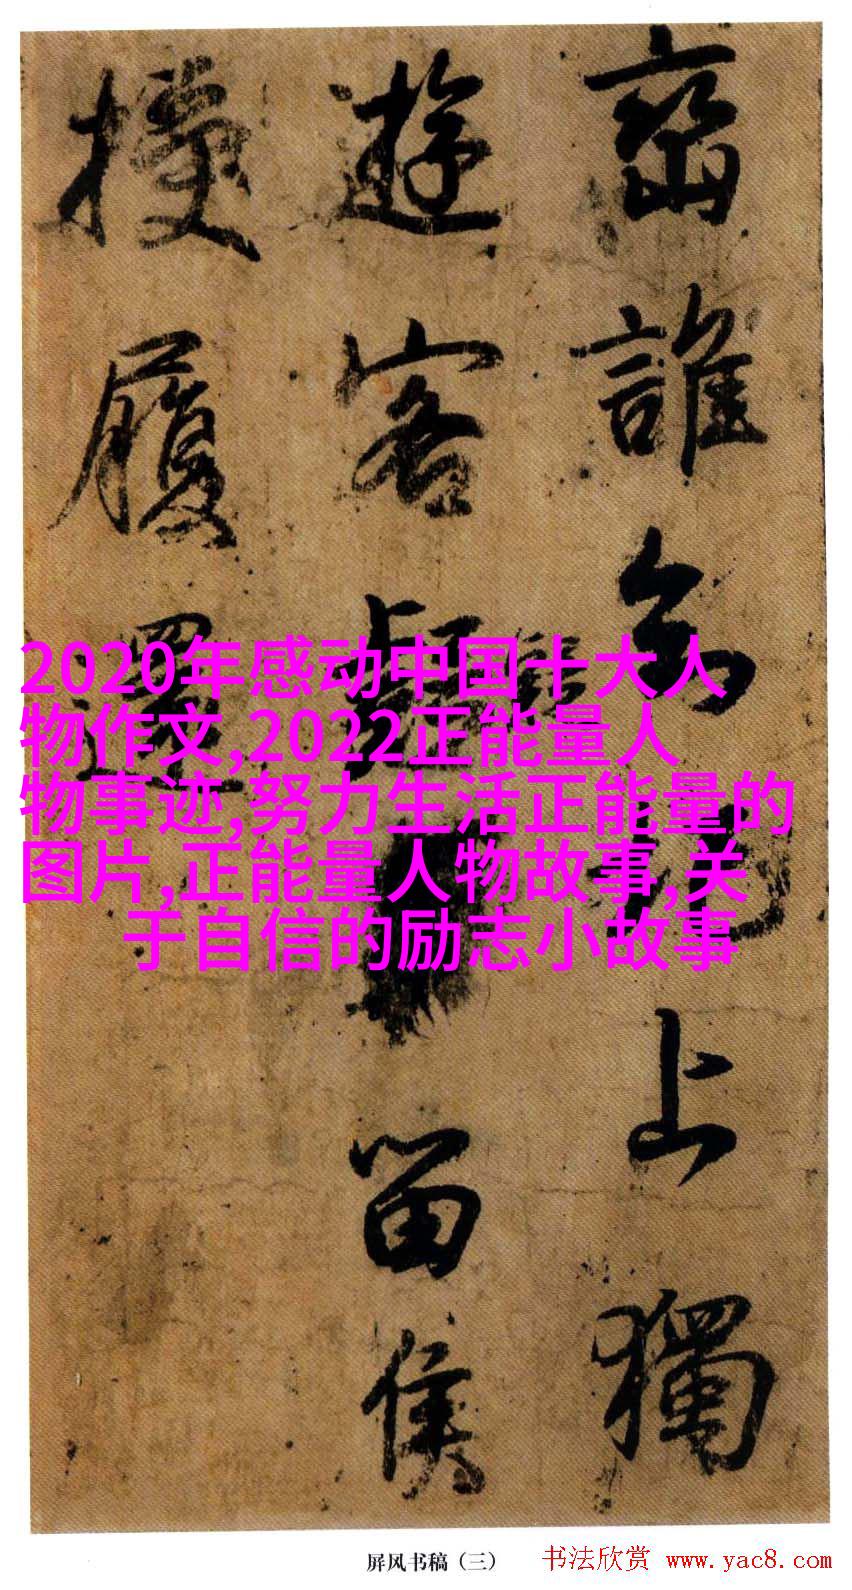 峦誰知上獨
遊客疑留侯
履還
2020年感动中国十大人
物作文,2022正能量人
物事迹,努力生活正能量的
图片,正能量人物故事,关
于自信的励志小故事
屏风书稿（三）
书法欣赏 www.yac8.com